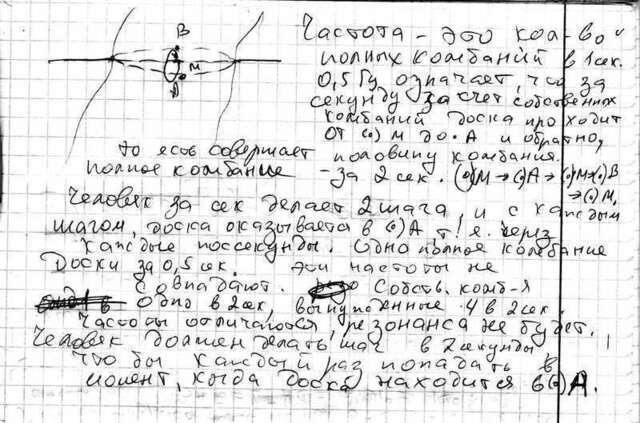 В
М
А
Частота – это кол-во
полных комбаний в 1 сек.
0,5 Гц означает, что за
секунду за счет собственных
комбаний доска проходит
от (·) М до ·А и обратно,
то есть совершает половину комбания.
полное комбание – за 2 сек. (·)М→(·)А→(·)М→(·)В
→(·)М.
Человек за сек делает 2 шага, и с каждым
шагом, доска оказывается в (·)А, т. е. через
каждые полсекунды. Одно полное колебание
доски за 0,5 сек. Эти частоты не
совпадают. Собств. комб-я
одно в 2 сек, вынужденные 4 в 2 сек.
Частоты отличаются, резонанса не будет.
Человек должен делать шаг в 2 секунды
что бы каждый раз попадать в
момент, когда доска находится в (·) А.